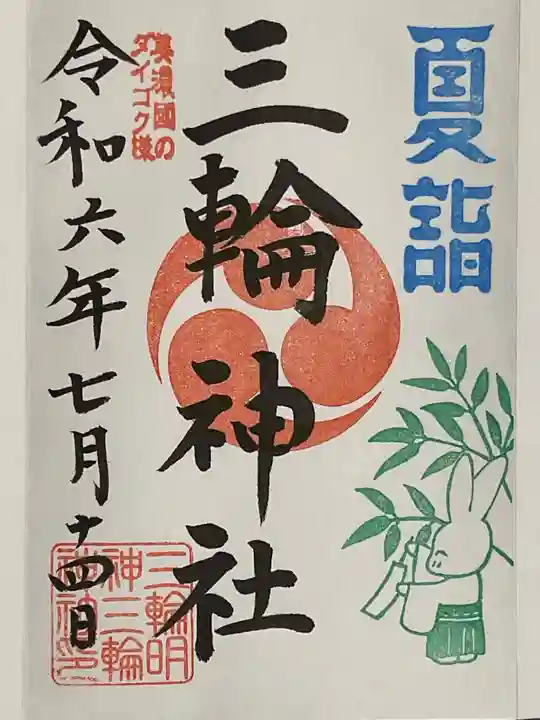 夏詣
三輪神社
美濃國の
ダイゴク様
令和六年七月十四日
三輪明
神三輪
神社印